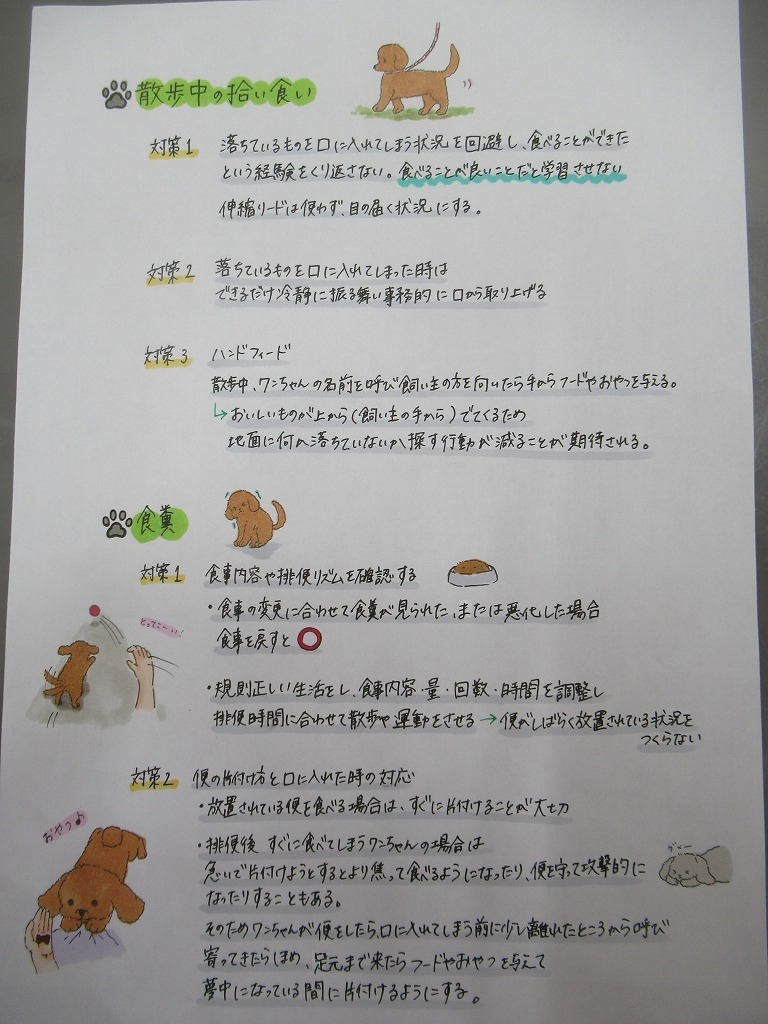 散歩中の拾い食い
対策1 落ちているものを口に入れてしまう状況を回避し、食べることができた
という経験をくり返さない。食べることが良いことだと学習させない
伸縮リードは使わず、目の届く状況にする。
対策2 落ちているものを口に入れてしまった時は
できるだけ冷静に振る舞い事務的に口から取り上げる
対策3 ハンドフィード
散歩中、ワンちゃんの名前を呼び飼い主の方を向いたら手からフードやおやつを与える。
↳おいしいものが上から(飼い主の手から)でてくるため
地面に何か落ちていないか探す行動が減ることが期待される。
食糞
対策1 食事内容や排便リズムを確認する
・食事の変更に合わせて食糞が見られた、または悪化した場合
食事を戻すと⭕
とってこーい!
・規則正しい生活をし、食事内容・量・回数・時間を調整し
排便時間に合わせて散歩や運動をさせる→便がしばらく放置されている状況を
つくらない
対策2 便の片付け方と口に入れた時の対応
・放置されている便を食べる場合は、すぐに片付けることが大切
おやつ♪
・排便後 すぐに食べてしまうワンちゃんの場合は
急いで片付けようとするとより焦って食べるようになったり、便を守って攻撃的に
なったりすることもある。
そのためワンちゃんが便をしたら、口に入れてしまう前に少し離れたところから呼び
寄ってきたらほめ、足元まで来たらフードやおやつを与えて
夢中になっている間に片付けるようにする。